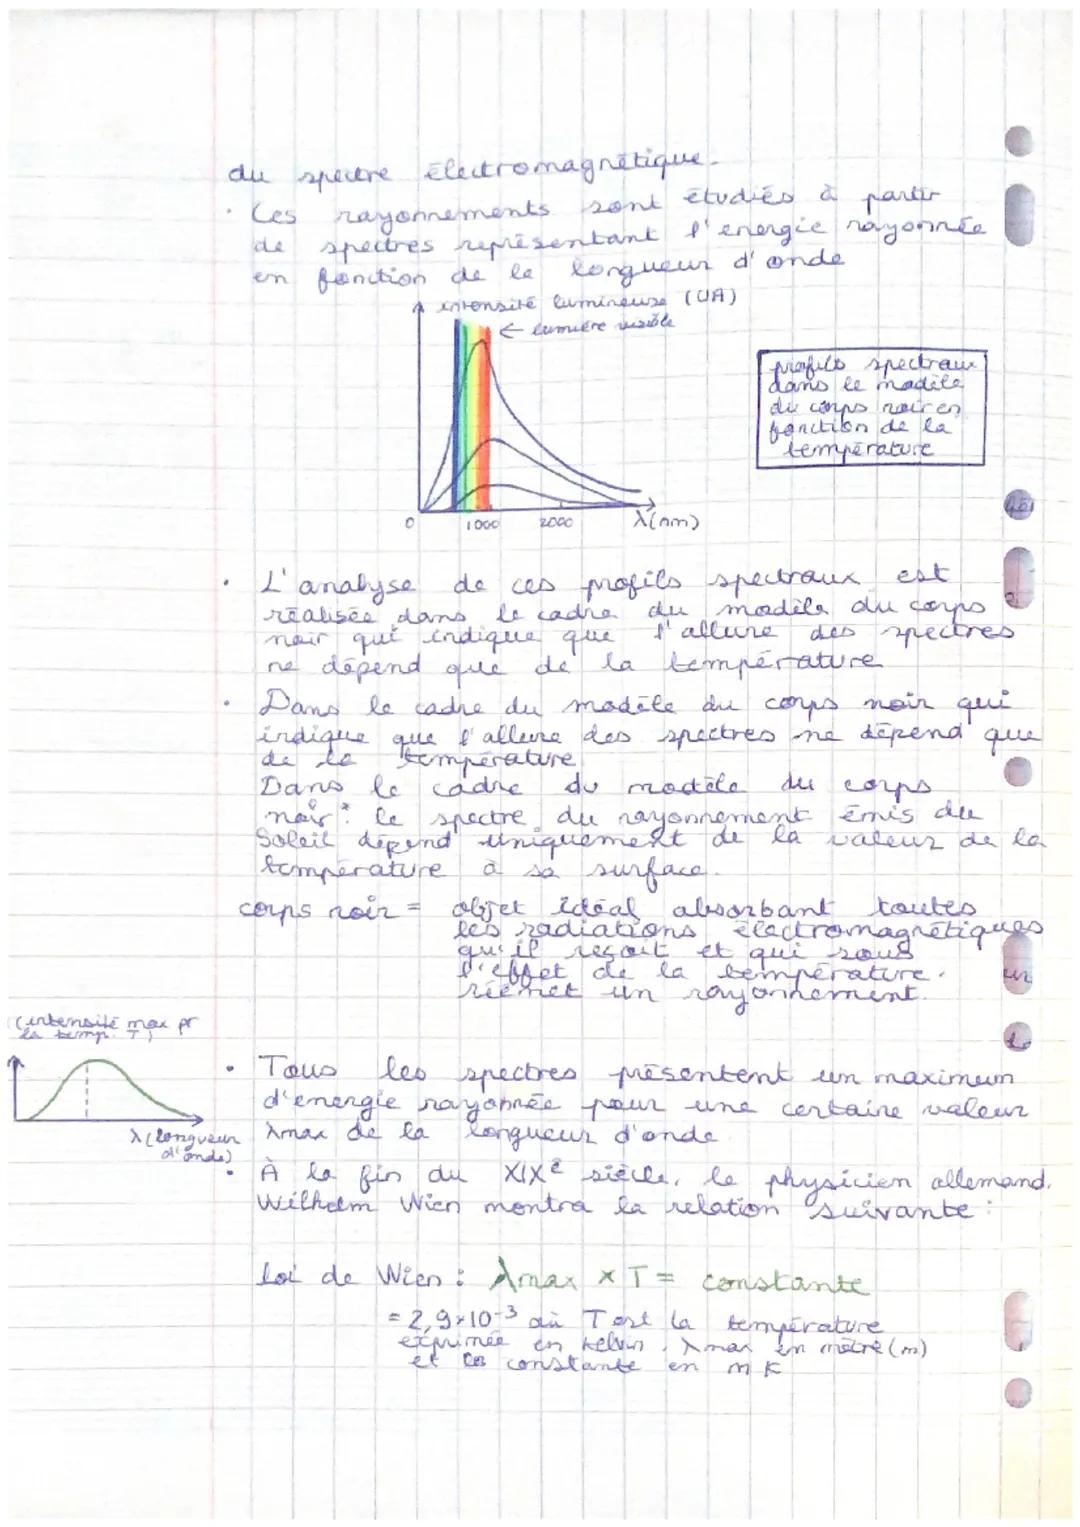 du spectre électromagnétique.
• Ces rayonnements sont étudiés à partir
de spectres représentant l'énergie rayonnée
en fonction de la longueur d'onde
intensité lumineuse (UA)
← lumière visible
profils spectraux
dans le modèle
du corps noir en
fonction de la
température
0 1000 2000 λ(nm)
• L'analyse de ces profils spectraux est
réalisée dans le cadre du modèle du corps
noir qui indique que l'allure des spectres
ne dépend que de la température
• Dans le cadre du modèle du corps noir qui
indique que l'allure des spectres ne dépend que
de la température
Dans le cadre du modèle du corps
noir : le spectre du rayonnement émis du
Soleil dépend uniquement de la valeur de la
température à sa surface.
corps noir = objet idéal absorbant toutes
les radiations électromagnétiques
qu'il reçoit et qui sous
l'effet de la température.
réémet un rayonnement.
(intensité max pr
la temp. T)
λ(longueur
d'onde)
• Tous les spectres présentent un maximum
d'énergie rayonnée pour une certaine valeur
λmax de la longueur d'onde
• À la fin du XIXe siècle, le physicien allemand.
Wilhelm Wien montra la relation suivante :
loi de Wien : λmax × T = constante
= 2,9×10-3 où T est la température
exprimée en kelvin, λmax en mètre (m)
et constante en m K